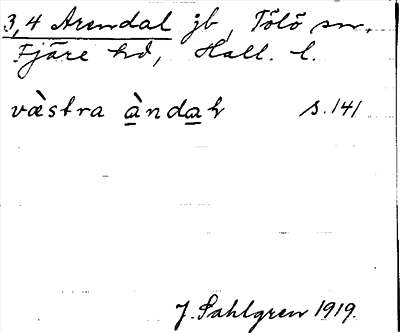 3,4 Arendal jb, Tölö sn.
Fjäre hd, Hall. l.
västra àndah s. 141
J. Sahlgren 1919.